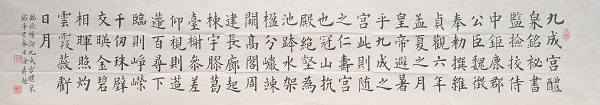 九成宮醴
泉銘祕書
監撿挍侍
中鉅鹿郡
公臣魏徵
奉勅撰維
貞觀六年
孟夏之月
皇帝避暑
乎九成之
宮此則随
之仁壽宮
也冠山抗
殿絕壑為
池跨水架
楹分巖竦
闕高閣周
建長廊起
棟宇膠葛
臺榭參差
仰視則迢
遰百尋下
臨則崢嶸
千仞珠璧
交暎金碧
相暉照灼
雲霞蔽虧
日月
臨歐陽詢九成宮醴泉
銘